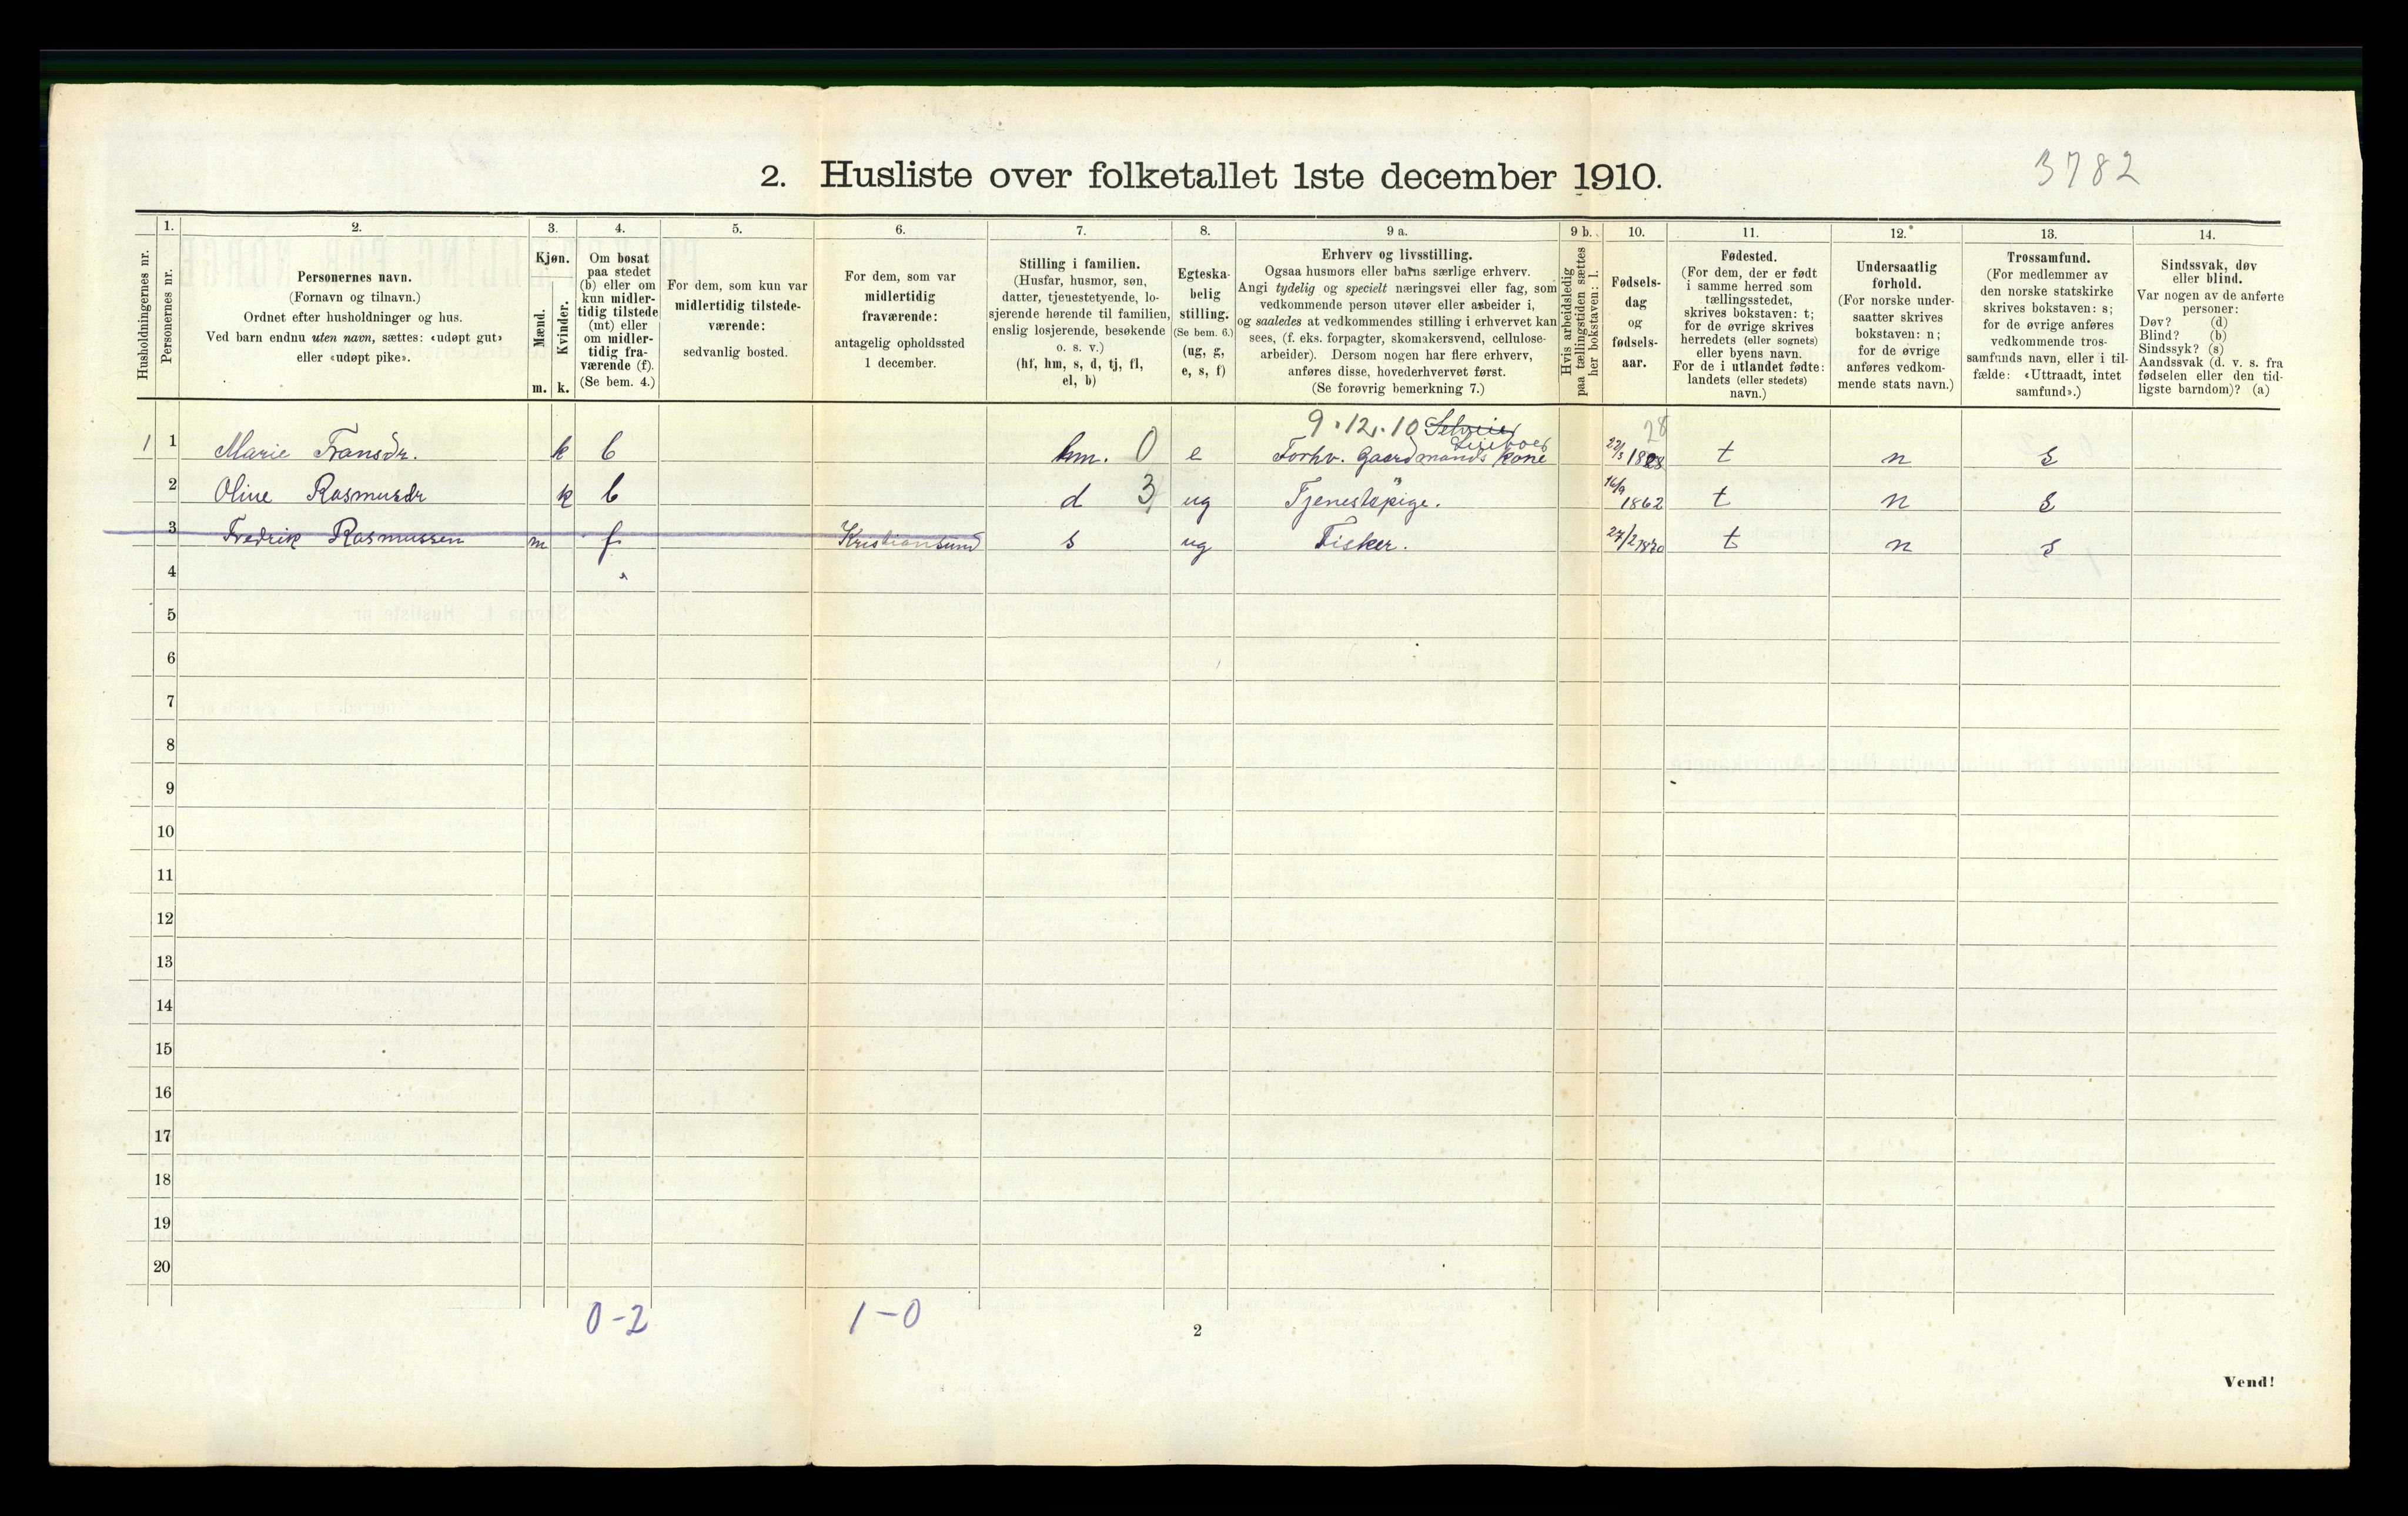 3782
2. Husliste over folketallet 1ste december 1910.
Husholdningernes nr.
1.
Personernes nr.
2.
Personernes navn.
(Fornavn og tilnavn.)
Ordnet efter husholdninger og hus.
Ved barn endnu uten navn, sættes: «udøpt gut»
eller «udøpt pike».
3.
Kjøn.
Mænd.
Kvinder.
m. k.
4.
Om bosat
paa stedet
(b) eller om
kun midler-
tidig tilstede
(mt) eller
om midler-
tidig fra-
værende (f).
(Se bem. 4.)
5.
For dem, som kun var
midlertidig tilstede-
værende:
sedvanlig bosted.
6.
For dem, som var
midlertidig
fraværende:
antagelig opholdssted
1 december.
7.
Stilling i familien.
(Husfar, husmor, søn,
datter, tjenestetyende, lo-
sjerende hørende til familien,
enslig losjerende, besøkende
o. s. v.)
(hf, hm, s, d, tj, fl,
el, b)
8.
Egteska-
belig
stilling.
(Se bem. 6.)
(ug, g,
e, s, f)
9 a.
Erhverv og livsstilling.
Ogsaa husmors eller barns særlige erhverv.
Angi tydelig og specielt næringsvei eller fag, som
vedkommende person utøver eller arbeider i,
og saaledes at vedkommendes stilling i erhvervet kan
sees, (f. eks. forpagter, skomakersvend, cellulose-
arbeider). Dersom nogen har flere erhverv,
anføres disse, hovederhvervet først.
(Se forøvrig bemerkning 7.)
9 b.
Hvis arbeidsledig
paa tællingstiden sættes
her bokstaven: l.
10.
Fødsels-
dag
og
fødsels-
aar.
11.
Fødested.
(For dem, der er født
i samme herred som
tællingsstedet,
skrives bokstaven: t;
for de øvrige skrives
herredets (eller sognets)
eller byens navn.
For de i utlandet fødte:
landets (eller stedets)
navn.)
12.
Undersaatlig
forhold.
(For norske under-
saatter skrives
bokstaven: n;
for de øvrige
anføres vedkom-
mende stats navn.)
13.
Trossamfund.
(For medlemmer av
den norske statskirke
skrives bokstaven: s;
for de øvrige anføres
vedkommende tros-
samfunds navn, eller i til-
fælde: «Uttraadt, intet
samfund».)
14.
Sindssvak, døv
eller blind.
Var nogen av de anførte
personer:
Døv? (d)
Blind? (b)
Sindssyk? (s)
Aandssvak (d. v. s. fra
fødselen eller den tid-
ligste barndom)? (a)
9.12.10 Selveier 28
1 1 Marie Fransdr. k b hm. 0 e Forhv. Gaardmands kone t n s
2 Oline Rasmusdr k b d 3 ug Tjenestepige. 16/9 1862 t n s
3 Fredrik Rasmussen m f Kristiansund s ug Fisker. 27/2 1870 t n s
4
5
6
7
8
9
10
11
12
13
14
15
16
17
18
19
20
0-2 1-0
2
Vend!